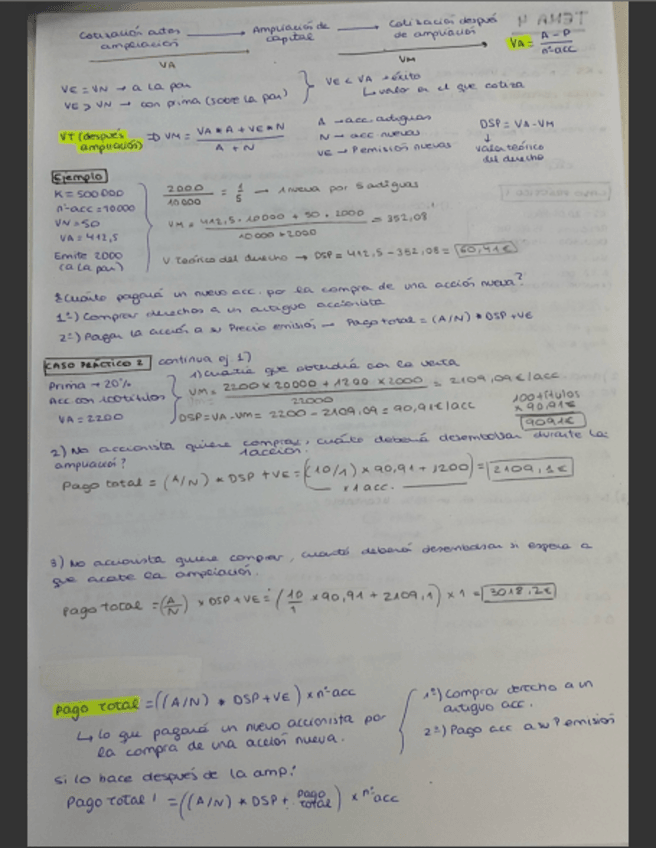 TEMA 4
Cotización antes ampliación → Ampliación de capital → Cotización después de ampliación
VA
VM
VA = A - P / nº acc
VE = VN → a la par
VE > VN → con prima (sobre la par)
VE < VA → éxito
↳ valor en el que cotiza
VT (después ampliación) ⇒ VM = VA * A + VE * N / A + N
A → acc. antiguas
N → acc nuevas
VE → P emisión nuevas
DSP = VA - VM
↓
valor teórico del derecho
Ejemplo
K = 500000
nº acc = 10000
VN = 50
VA = 412,5
Emite 2000
(a la par)
2000 / 10000 = 1/5 → 1 nueva por 5 antiguas
VM = 412,5 · 10000 + 50 · 2000 / 10000 + 2000 = 352,08
V Teórico del derecho → DSP = 412,5 - 352,08 = 60,41€
¿Cuánto pagará un nuevo acc. por la compra de una acción nueva?
1º) Comprar derechos a un antiguo accionista
2º) Pagar la acción a su Precio emisión → Pago total = (A/N) * DSP + VE
CASO PRÁCTICO 2 continua ej. 1)
Prima → 20%
Acc con 100 títulos
VA = 2200
1) cuantía que obtendrá con la venta
VM = 2200 x 20000 + 1200 x 2000 / 22000 = 2109,09 €/acc
DSP = VA - VM = 2200 - 2109,09 = 90,91€/acc
100 títulos
x 90,91€
9091€
2) No accionista quiere comprar 1 acción, cuánto deberá desembolsar durante la
ampliación?
Pago total = (A/N) * DSP + VE = (10/1) x 90,91 + 1200) = 2109,1€
x 1 acc.
3) No accionista quiere comprar, cuanto deberá desembolsar si espera a
que acabe la ampliación.
Pago total = (A/N) x DSP + VE = (10/1 x 90,91 + 2109,1) x 1 = 3018,2€
Pago total = ((A/N) * DSP + VE) x nº acc
↳ lo que pagará un nuevo accionista por
la compra de una acción nueva.
1º) Comprar derecho a un
antiguo acc.
2º) Pago acc a su P emisión
Si lo hace después de la amp:
Pago total' = ((A/N) * DSP + Pago total) x nº acc